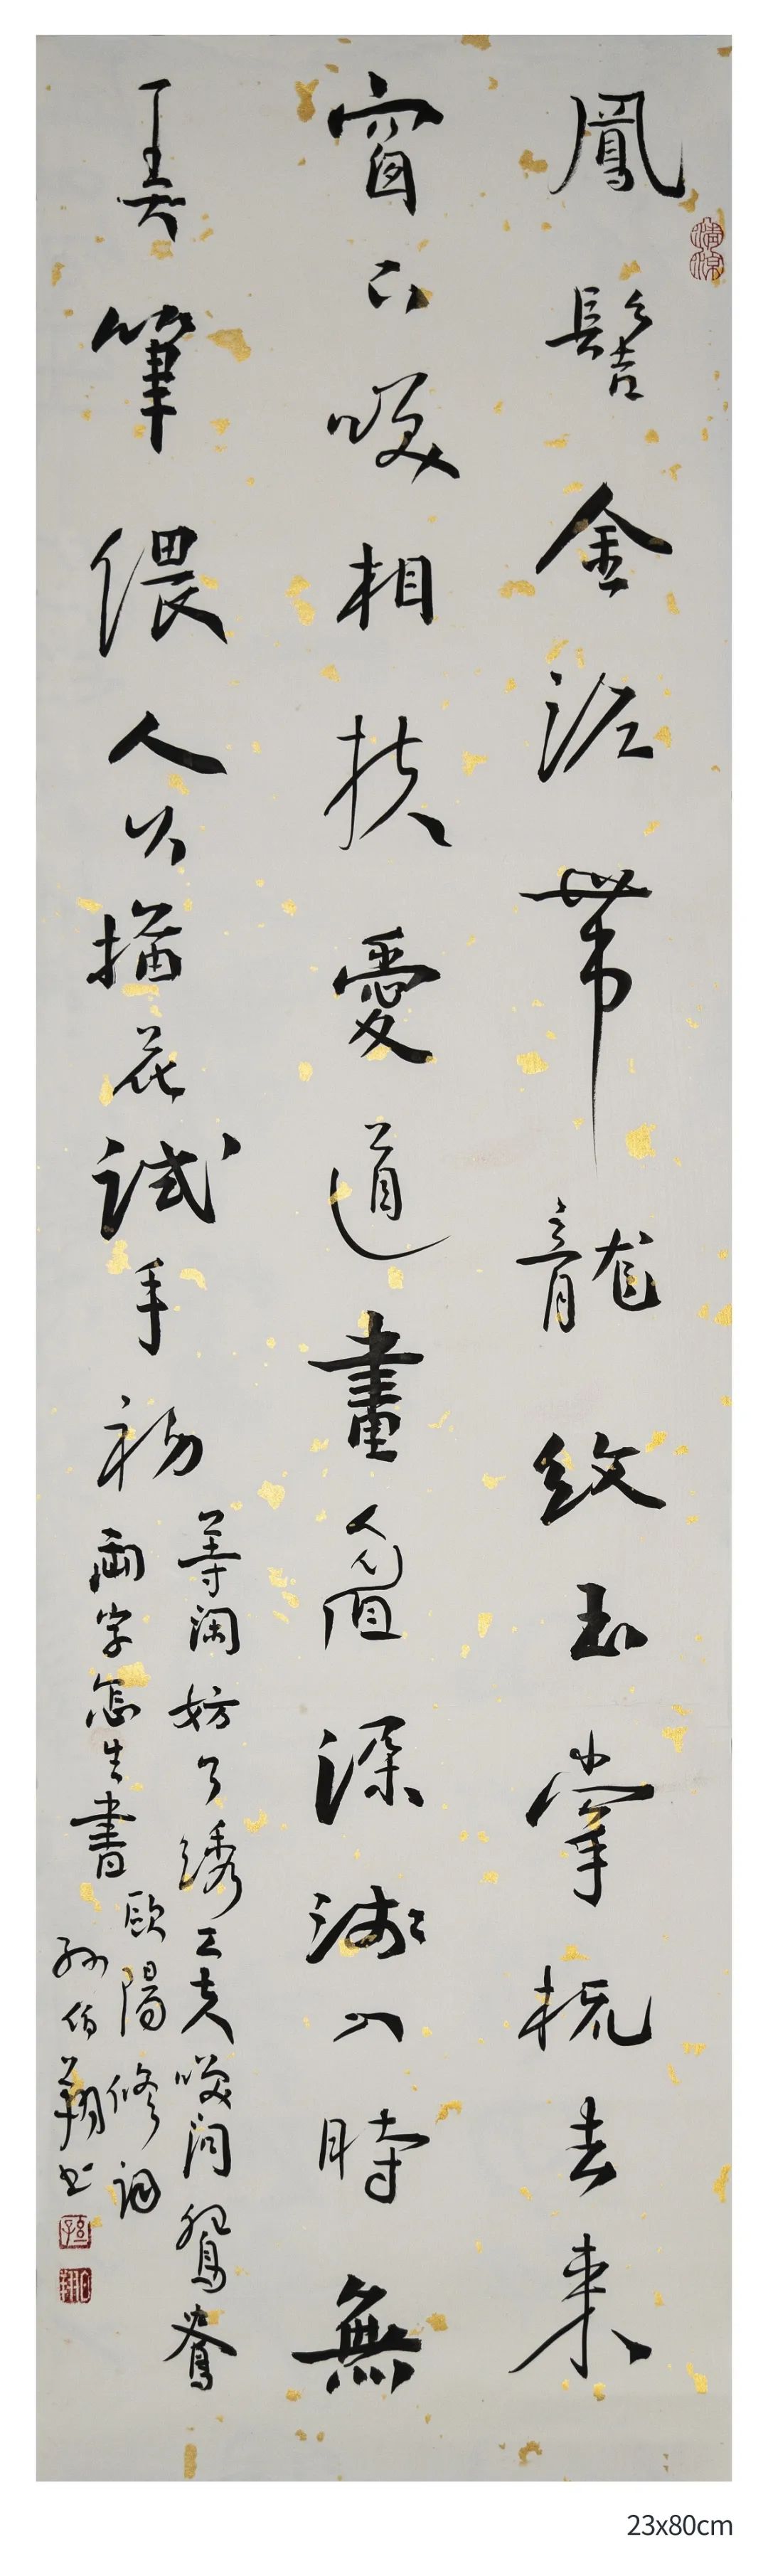 鳳髻金泥帶龍紋玉掌梳去來
窗下咲相扶愛道畫眉深淺入時無
弄筆偎人久描花試手初
等閑妨了绣工夫咲问鴛鴦
兩字怎生書
歐陽修詞
孫伯翔书
23x80cm